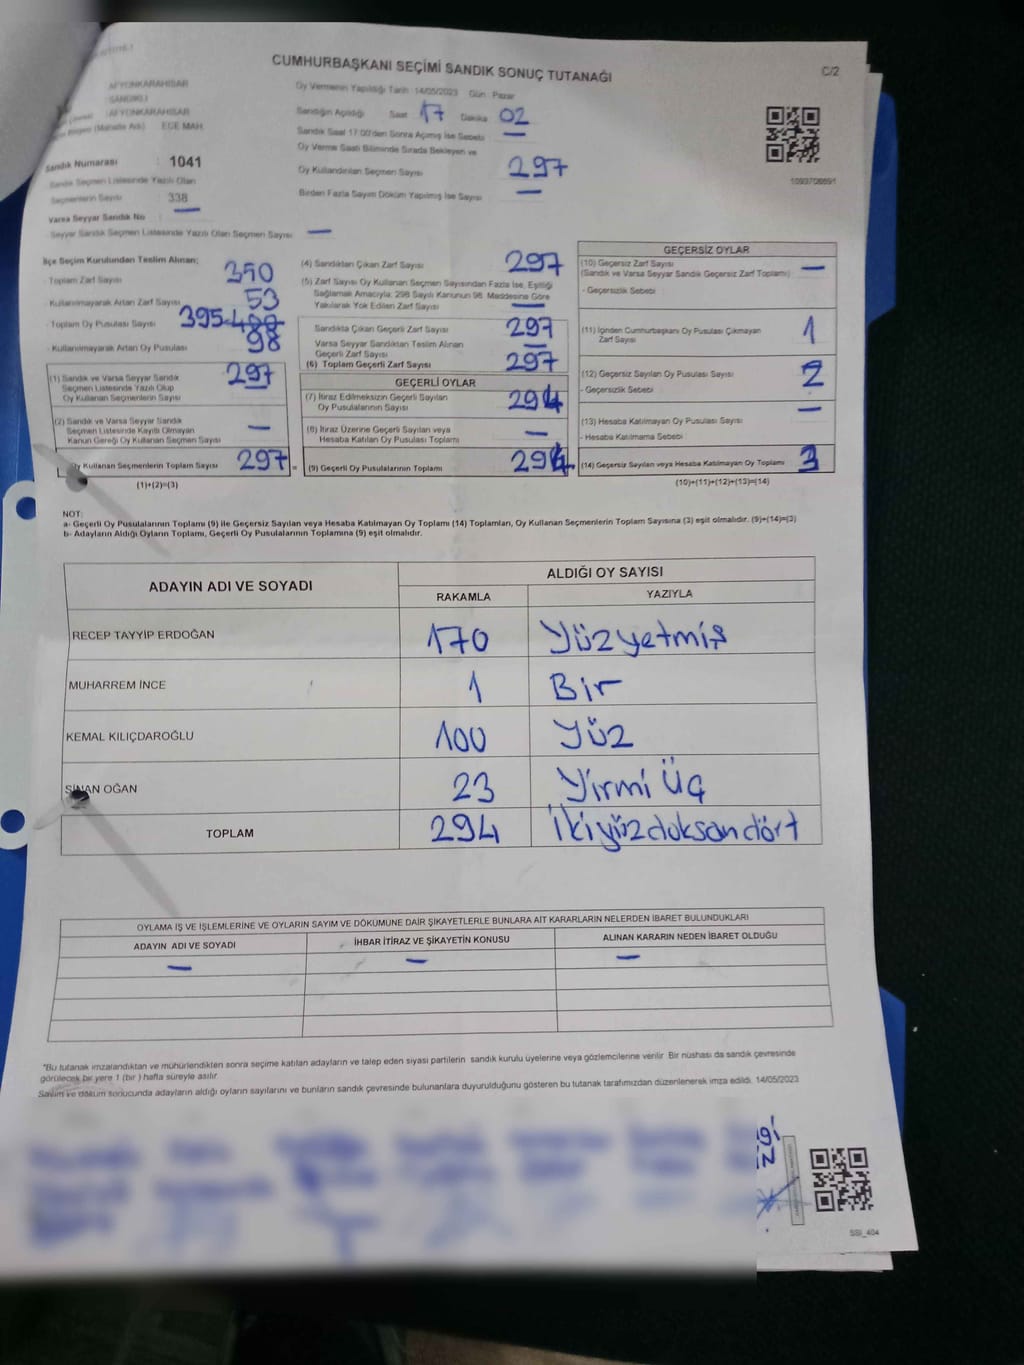 CUMHURBAŞKANI SEÇİMİ SANDIK SONUÇ TUTANAĞI
C/2
AFYONKARAHİSAR
SANDIKLI
AFYONKARAHİSAR
(Mahalle Adı) : ECE MAH.
Sandık Numarası : 1041
Sandık Seçmen Listesinde Yazılı Olan
Seçmenlerin Sayısı : 338
Varsa Seyyar Sandık No —
Seyyar Sandık Seçmen Listesinde Yazılı Olan Seçmen Sayısı —
Oy Vermenin Yapıldığı Tarih : 14/05/2023 Gün : Pazar
Sandığın Açıldığı Saat 17 Dakika 02
Sandık Saat 17:00'den Sonra Açılmış İse Sebebi —
Oy Verme Saati Bitiminde Sırada Bekleyen ve
Oy Kullandırılan Seçmen Sayısı 297
Birden Fazla Sayım Döküm Yapılmış İse Sayısı —
1093708691
İlçe Seçim Kurulundan Teslim Alınan;
- Toplam Zarf Sayısı 350
- Kullanılmayarak Artan Zarf Sayısı 53
- Toplam Oy Pusulası Sayısı 395
- Kullanılmayarak Artan Oy Pusulası 98
(1) Sandık ve Varsa Seyyar Sandık
Seçmen Listesinde Yazılı Olup
Oy Kullanan Seçmenlerin Sayısı 297
(2) Sandık ve Varsa Seyyar Sandık
Seçmen Listesinde Kayıtlı Olmayan
Kanun Gereği Oy Kullanan Seçmen Sayısı —
Oy Kullanan Seçmenlerin Toplam Sayısı 297 =
(1)+(2)=(3)
(4) Sandıktan Çıkan Zarf Sayısı 297
(5) Zarf Sayısı Oy Kullanan Seçmen Sayısından Fazla İse, Eşitliği
Sağlamak Amacıyla; 298 Sayılı Kanunun 98. Maddesine Göre
Yakılarak Yok Edilen Zarf Sayısı —
Sandıkta Çıkan Geçerli Zarf Sayısı 297
Varsa Seyyar Sandıktan Teslim Alınan
Geçerli Zarf Sayısı —
(6) Toplam Geçerli Zarf Sayısı 297
GEÇERLİ OYLAR
(7) İtiraz Edilmeksizin Geçerli Sayılan
Oy Pusulalarının Sayısı 294
(8) İtiraz Üzerine Geçerli Sayılan veya
Hesaba Katılan Oy Pusulası Toplamı —
(9) Geçerli Oy Pusulalarının Toplamı 294
GEÇERSİZ OYLAR
(10) Geçersiz Zarf Sayısı —
(Sandık ve Varsa Seyyar Sandık Geçersiz Zarf Toplamı)
- Geçersizlik Sebebi
(11) İçinden Cumhurbaşkanı Oy Pusulası Çıkmayan
Zarf Sayısı 1
(12) Geçersiz Sayılan Oy Pusulası Sayısı 2
- Geçersizlik Sebebi
(13) Hesaba Katılmayan Oy Pusulası Sayısı —
- Hesaba Katılmama Sebebi
(14) Geçersiz Sayılan veya Hesaba Katılmayan Oy Toplamı 3
(10)+(11)+(12)+(13)=(14)
NOT:
a- Geçerli Oy Pusulalarının Toplamı (9) ile Geçersiz Sayılan veya Hesaba Katılmayan Oy Toplamı (14) Toplamları, Oy Kullanan Seçmenlerin Toplam Sayısına (3) eşit olmalıdır. (9)+(14)=(3)
b- Adayların Aldığı Oyların Toplamı, Geçerli Oy Pusulalarının Toplamına (9) eşit olmalıdır.
ADAYIN ADI VE SOYADI
ALDIĞI OY SAYISI
RAKAMLA YAZIYLA
RECEP TAYYİP ERDOĞAN 170 Yüzyetmiş
MUHARREM İNCE 1 Bir
KEMAL KILIÇDAROĞLU 100 Yüz
SİNAN OĞAN 23 Yirmi Üç
TOPLAM 294 İkiyüzdoksandört
OYLAMA İŞ VE İŞLEMLERİNE VE OYLARIN SAYIM VE DÖKÜMÜNE DAİR ŞİKAYETLERLE BUNLARA AİT KARARLARIN NELERDEN İBARET BULUNDUKLARI
ADAYIN ADI VE SOYADI İHBAR İTİRAZ VE ŞİKAYETİN KONUSU ALINAN KARARIN NEDEN İBARET OLDUĞU
— — —
*Bu tutanak imzalandıktan ve mühürlendikten sonra seçime katılan adayların ve talep eden siyasi partilerin sandık kurulu üyelerine veya gözlemcilerine verilir. Bir nüshası da sandık çevresinde
görülecek bir yere 1 (bir) hafta süreyle asılır.
Sayım ve döküm sonucunda adayların aldığı oyların sayılarını ve bunların sandık çevresinde bulunanlara duyurulduğunu gösteren bu tutanak tarafımızdan düzenlenerek imza edildi. 14/05/2023
SSI_404